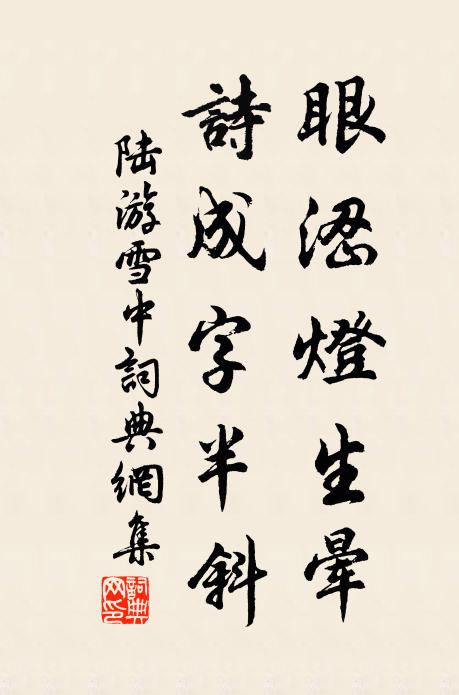 眼涩燈生暈
詩成字半斜
陆游雪中詞典網集
詞典网印